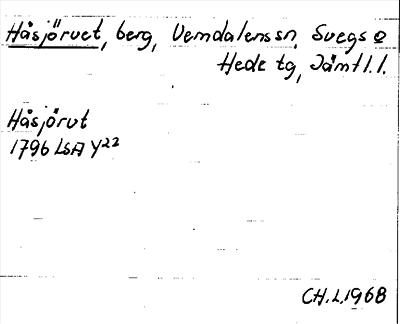 Håsjörvet, berg, Vemdalens sn, Svegs o
Hede tg, Jämtl. l.
Håsjörvt
1796 LSA Y22
CH.L.1968